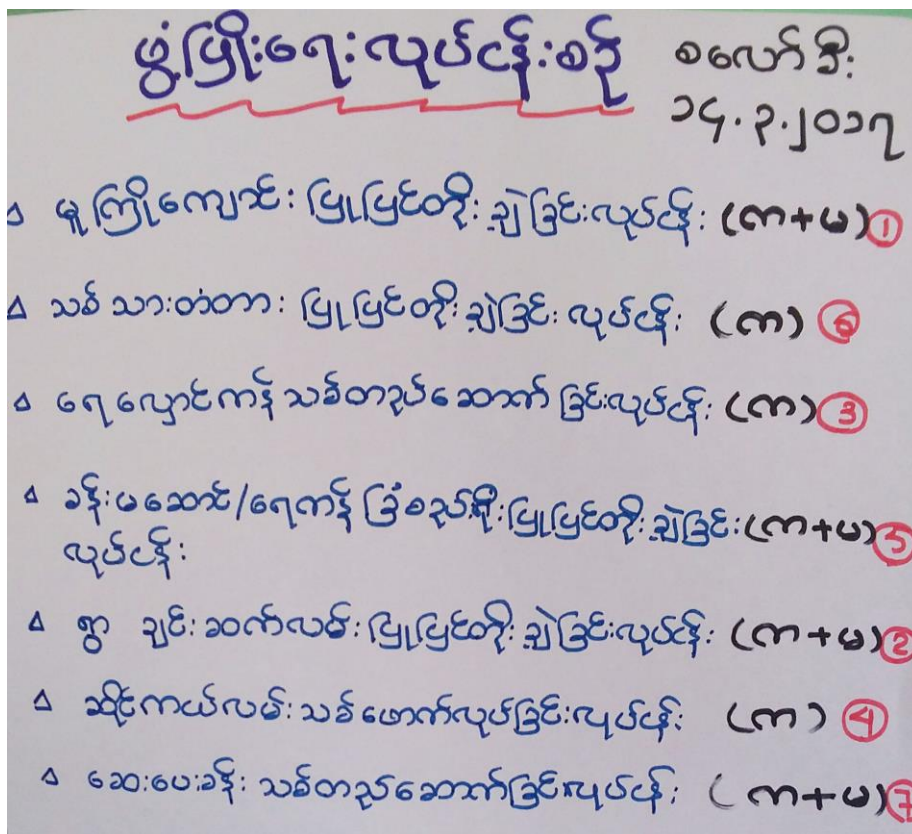 ဖွံ့ဖြိုးရေးလုပ်ငန်းစဉ်
စလော်ဒီး
၁၄.၃.၂၀၁၇
∆ မူကြိုကျောင်းပြုပြင်တိုးချဲ့ခြင်းလုပ်ငန်း (က+မ) ①
∆ သစ်သားတံတားပြုပြင်တိုးချဲ့ခြင်းလုပ်ငန်း (က) ⑥
∆ ရေလှောင်ကန်သစ်တည်ဆောက်ခြင်းလုပ်ငန်း (က) ③
∆ ခန်းမဆောင်/ရေကန်ခြံစည်းရိုးပြုပြင်တိုးချဲ့ခြင်း (က+မ) ⑤
လုပ်ငန်း
∆ ရွာချင်းဆက်လမ်းပြုပြင်တိုးချဲ့ခြင်းလုပ်ငန်း (က+မ) ②
∆ ဆိုင်ကယ်လမ်းသစ်ဖောက်လုပ်ခြင်းလုပ်ငန်း (က) ④
∆ ဆေးပေးခန်းသစ်တည်ဆောက်ခြင်းလုပ်ငန်း (က+မ) ⑦